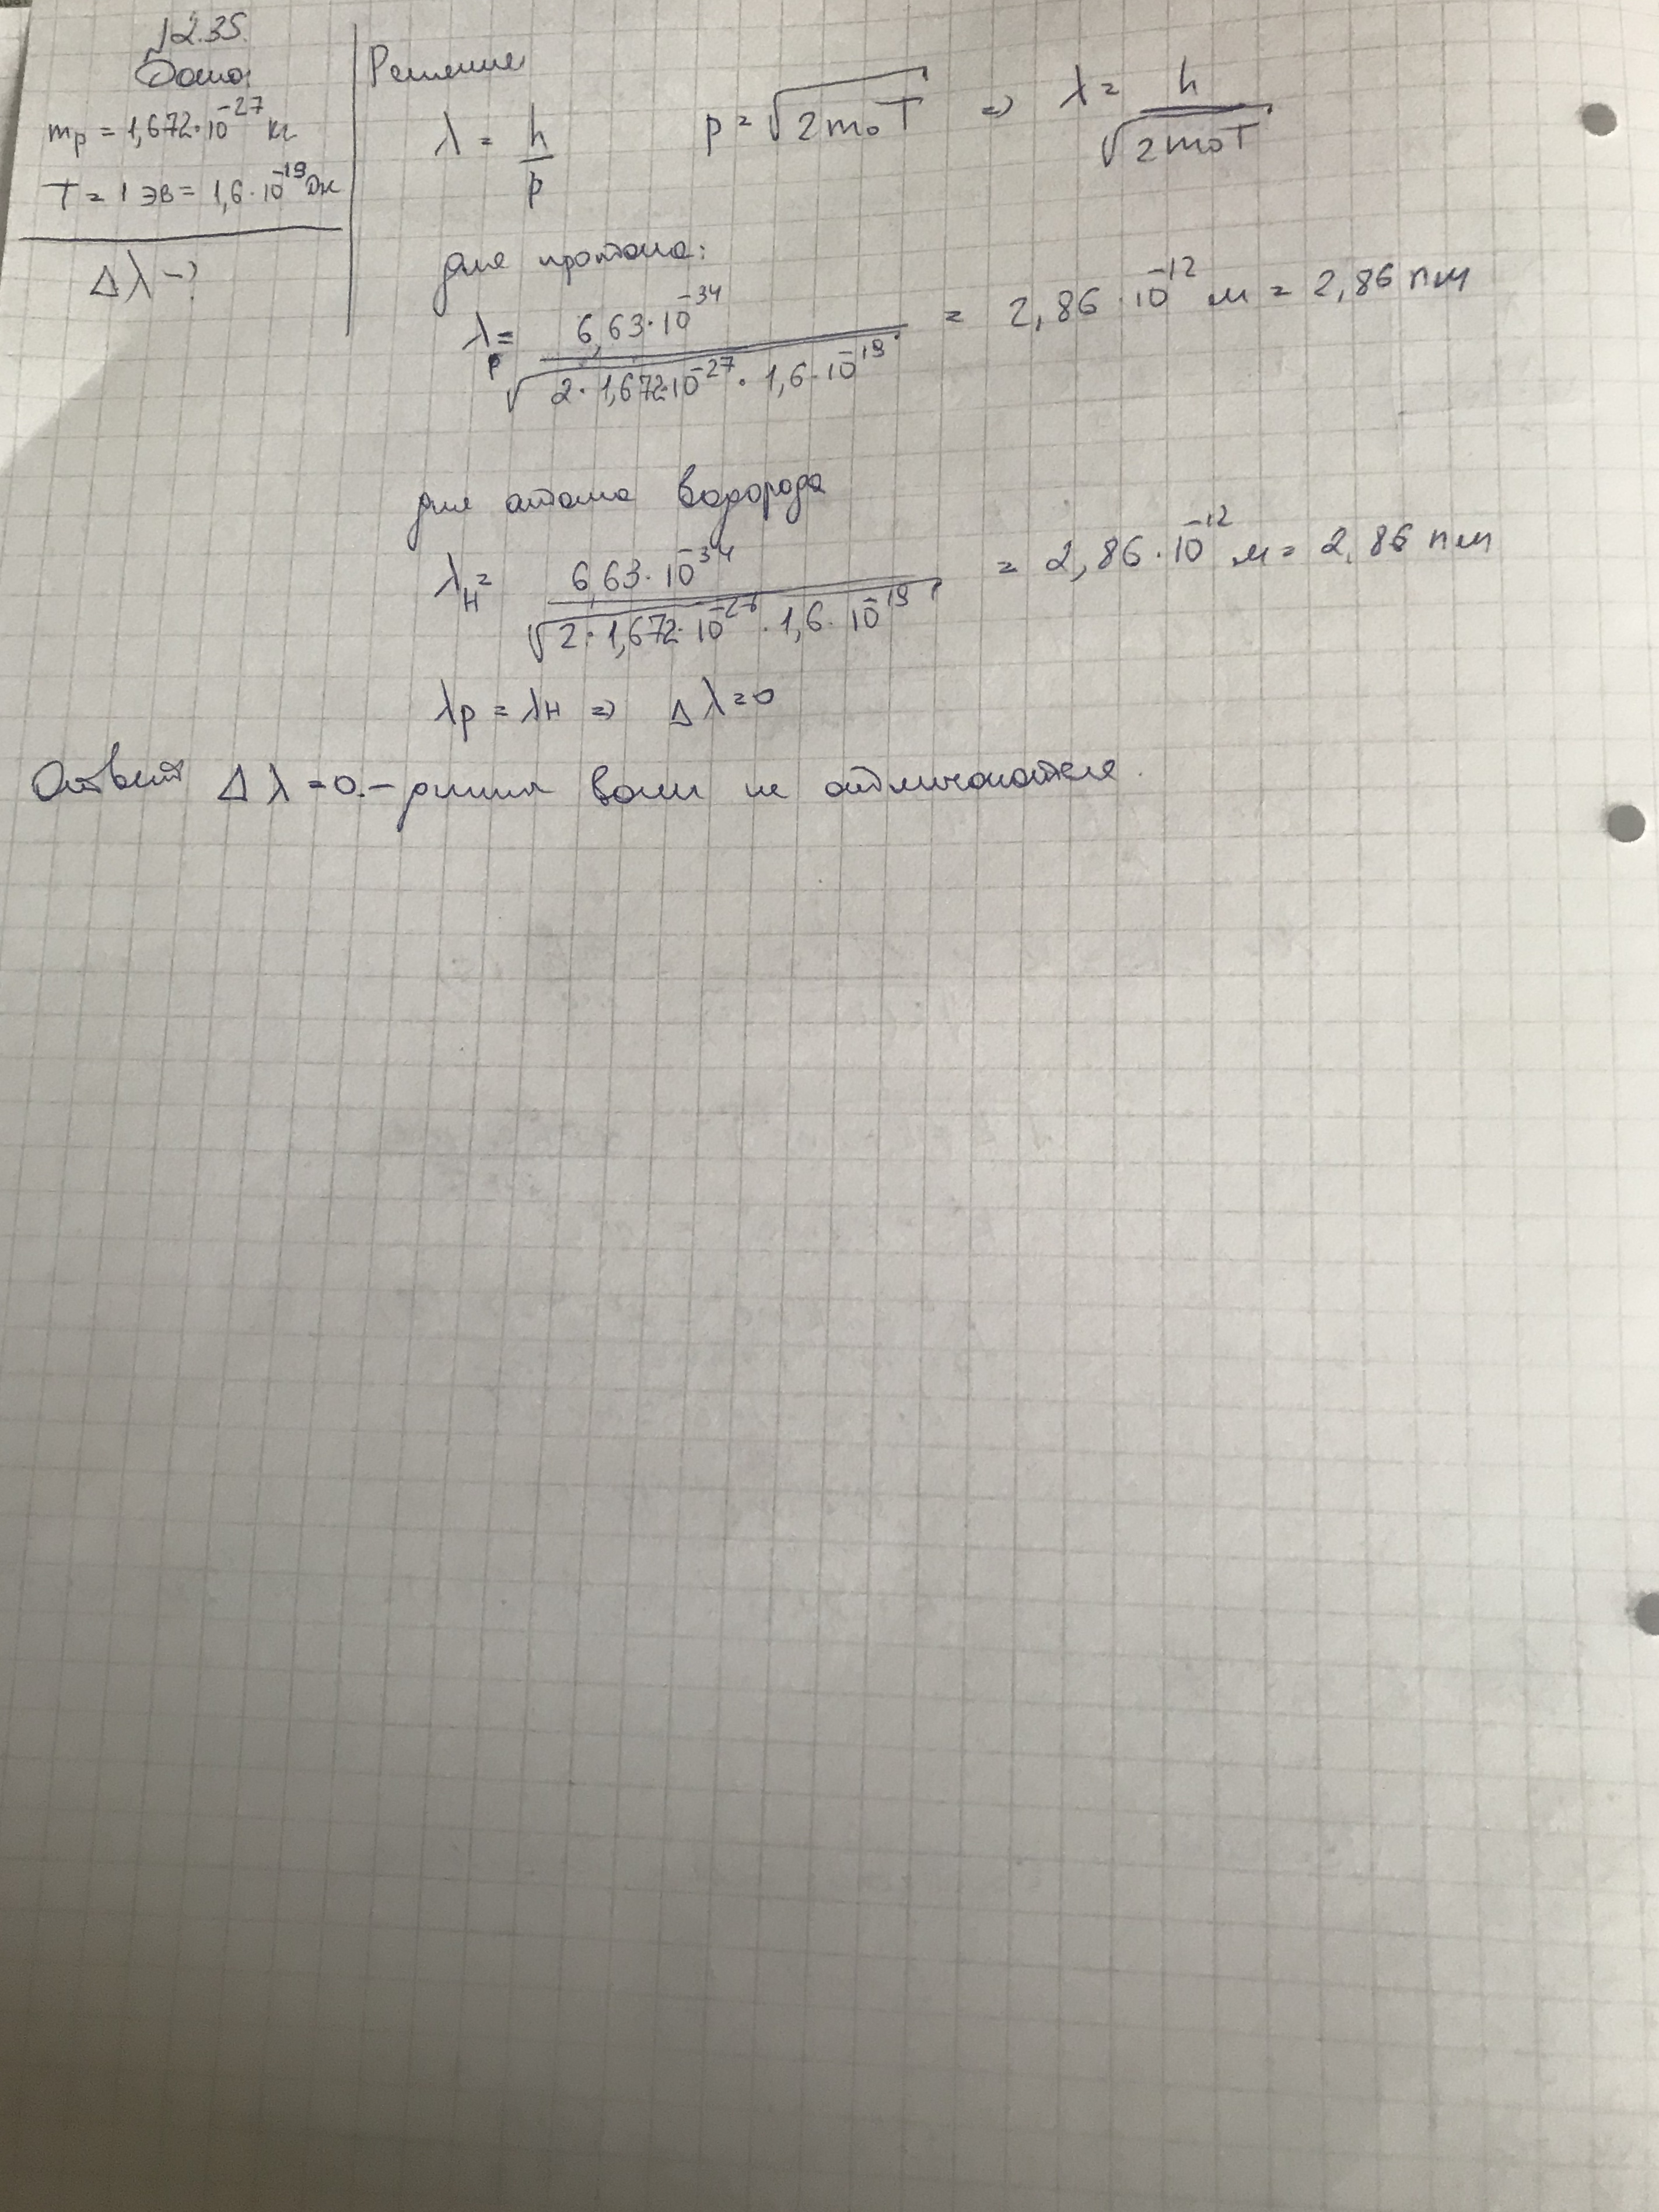 12.35.
Дано:
mp = 1,672·10⁻²⁷ кг
T = 1 эВ = 1,6·10⁻¹⁹ Дж
Δλ -?
Решение
λ = h/p p = √(2m₀T) => λ = h/√(2m₀T)
для протона:
λp = 6,63·10⁻³⁴/√(2·1,672·10⁻²⁷·1,6·10⁻¹⁹) = 2,86·10⁻¹² м = 2,86 пм
для атома водорода
λH = 6,63·10⁻³⁴/√(2·1,672·10⁻²⁷·1,6·10⁻¹⁹) = 2,86·10⁻¹² м = 2,86 пм
λp = λH => Δλ=0
Ответ Δλ=0.- длины волн не отличаются.